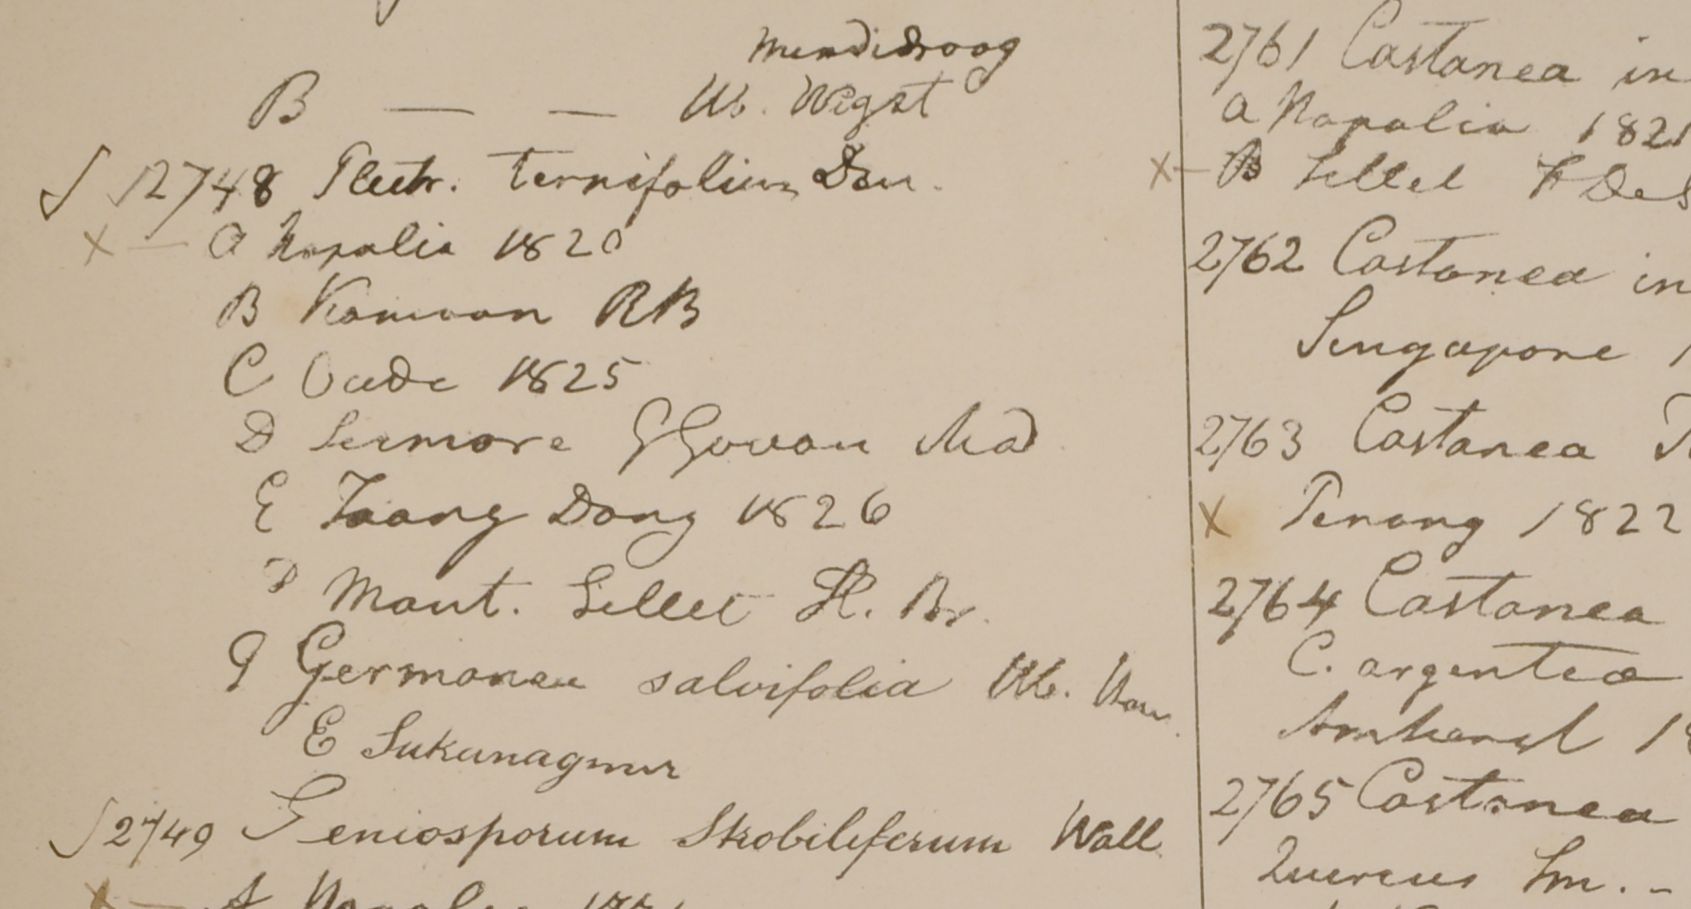 Mundidroog
B — — Hb. Wigst
∫ 2748 Plectr. ternifolium Don.
x — a Napalia 1820
B Kamaon RB
C Oude 1825
D Sirmore G Govan
E Taong Dong 1826
Mont. Sillet H. Br.
G Germanea salvifolia Hb.
E Sukanagmur
∫ 2749 Geniosporum Strobiliferum Wall
x — A Napalia 1821
2761 Castanea in
a Napalia 1821
x — B Sillet F De S
2762 Castanea in
Singapore 1
2763 Castanea
x Penang 1822
2764 Castanea
C. argentea
Amherst 18
2765 Castanea
Quercus Sm. -